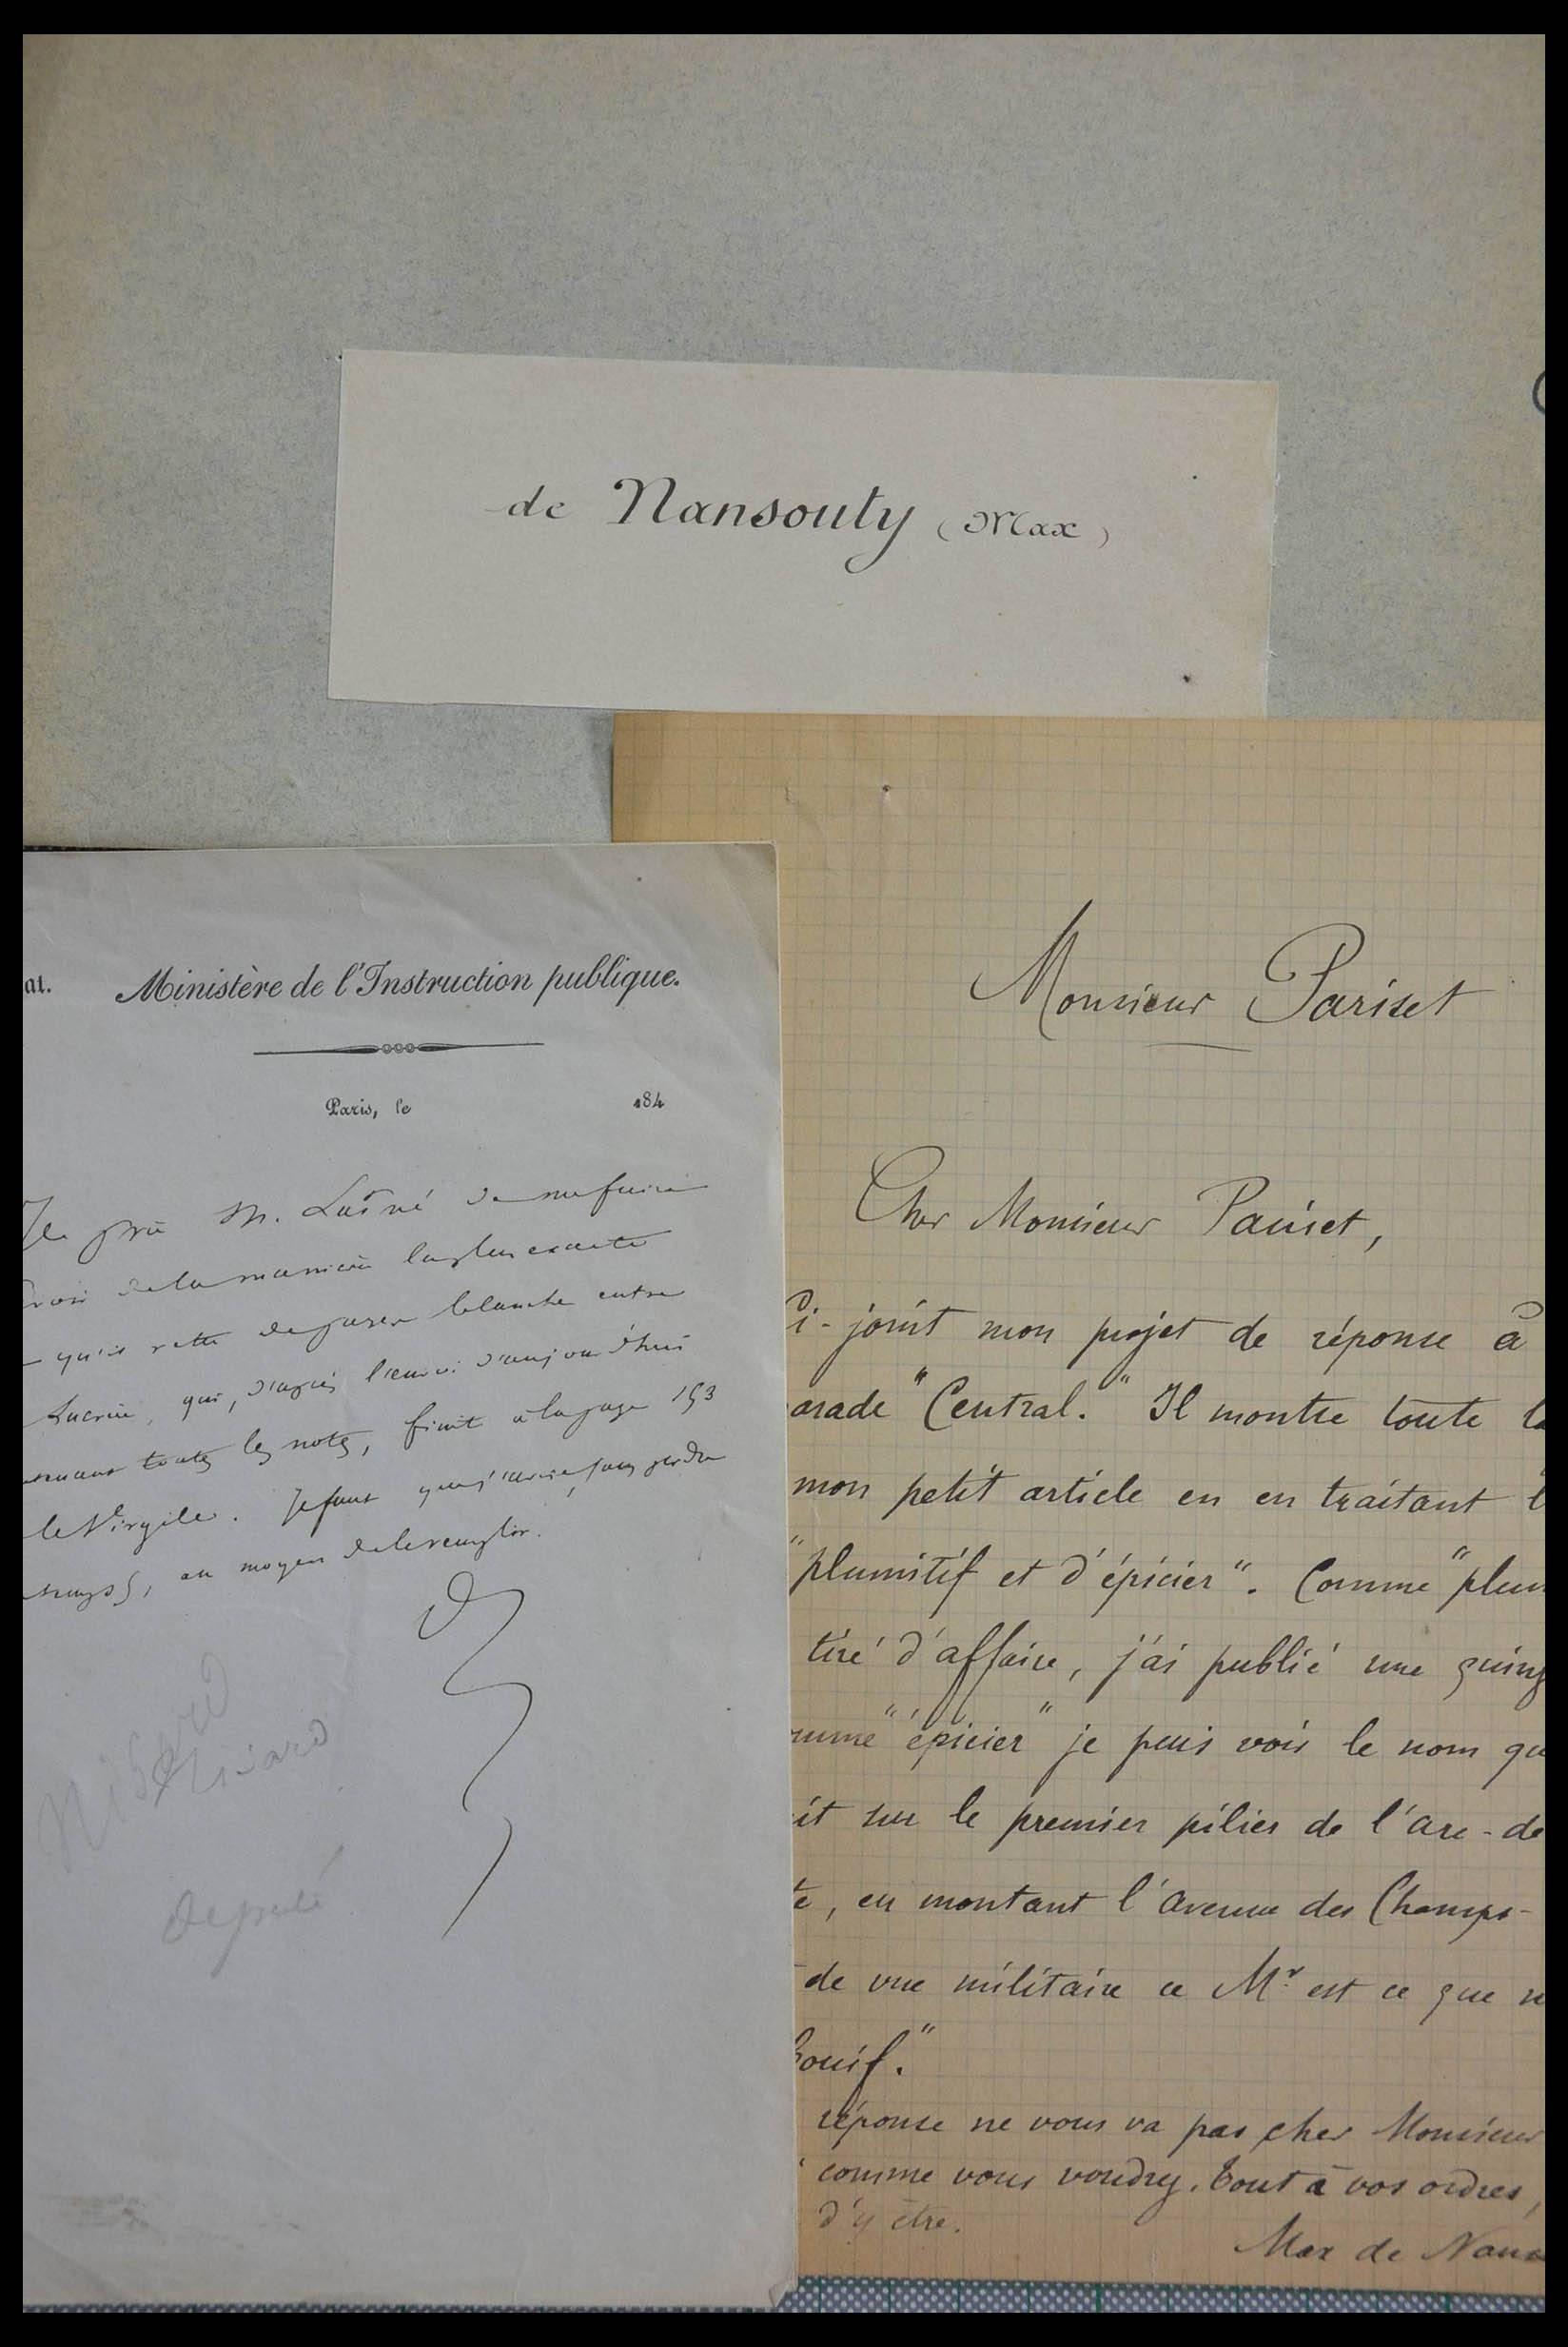 de Nansouty (Max)
at. Ministère de l'Instruction publique.
Paris, le 184
Je prie M. Lasné de me faire
de la manière la plus exacte
qu'il reste de pages blanche entre
Lucrèce, qui, d'après l'envoi d'aujourd'hui
toutes les notes, finit à la page 193
le Virgile. Il faut que j'avise, sans perdre
au moyen de le remplir.
Nisard
Nisard
député
Monsieur Pariset
Cher Monsieur Pariset,
Ci-joint mon projet de réponse à
arade "Central." Il montre toute la
mon petit article en en traitant l
"plumitif et d'épicier". Comme "plum
tiré d'affaire, j'ai publié une quinz
omme "épicier" je puis voir le nom qu
it sur le premier pilier de l'arc-de
te, en montant l'avenue des Champs-
de vue militaire ce Mr est ce que n
ouif."
réponse ne vous va pas cher Monsieur
comme vous voudrez. Tout à vos ordres,
d'y être.
Max de Nans